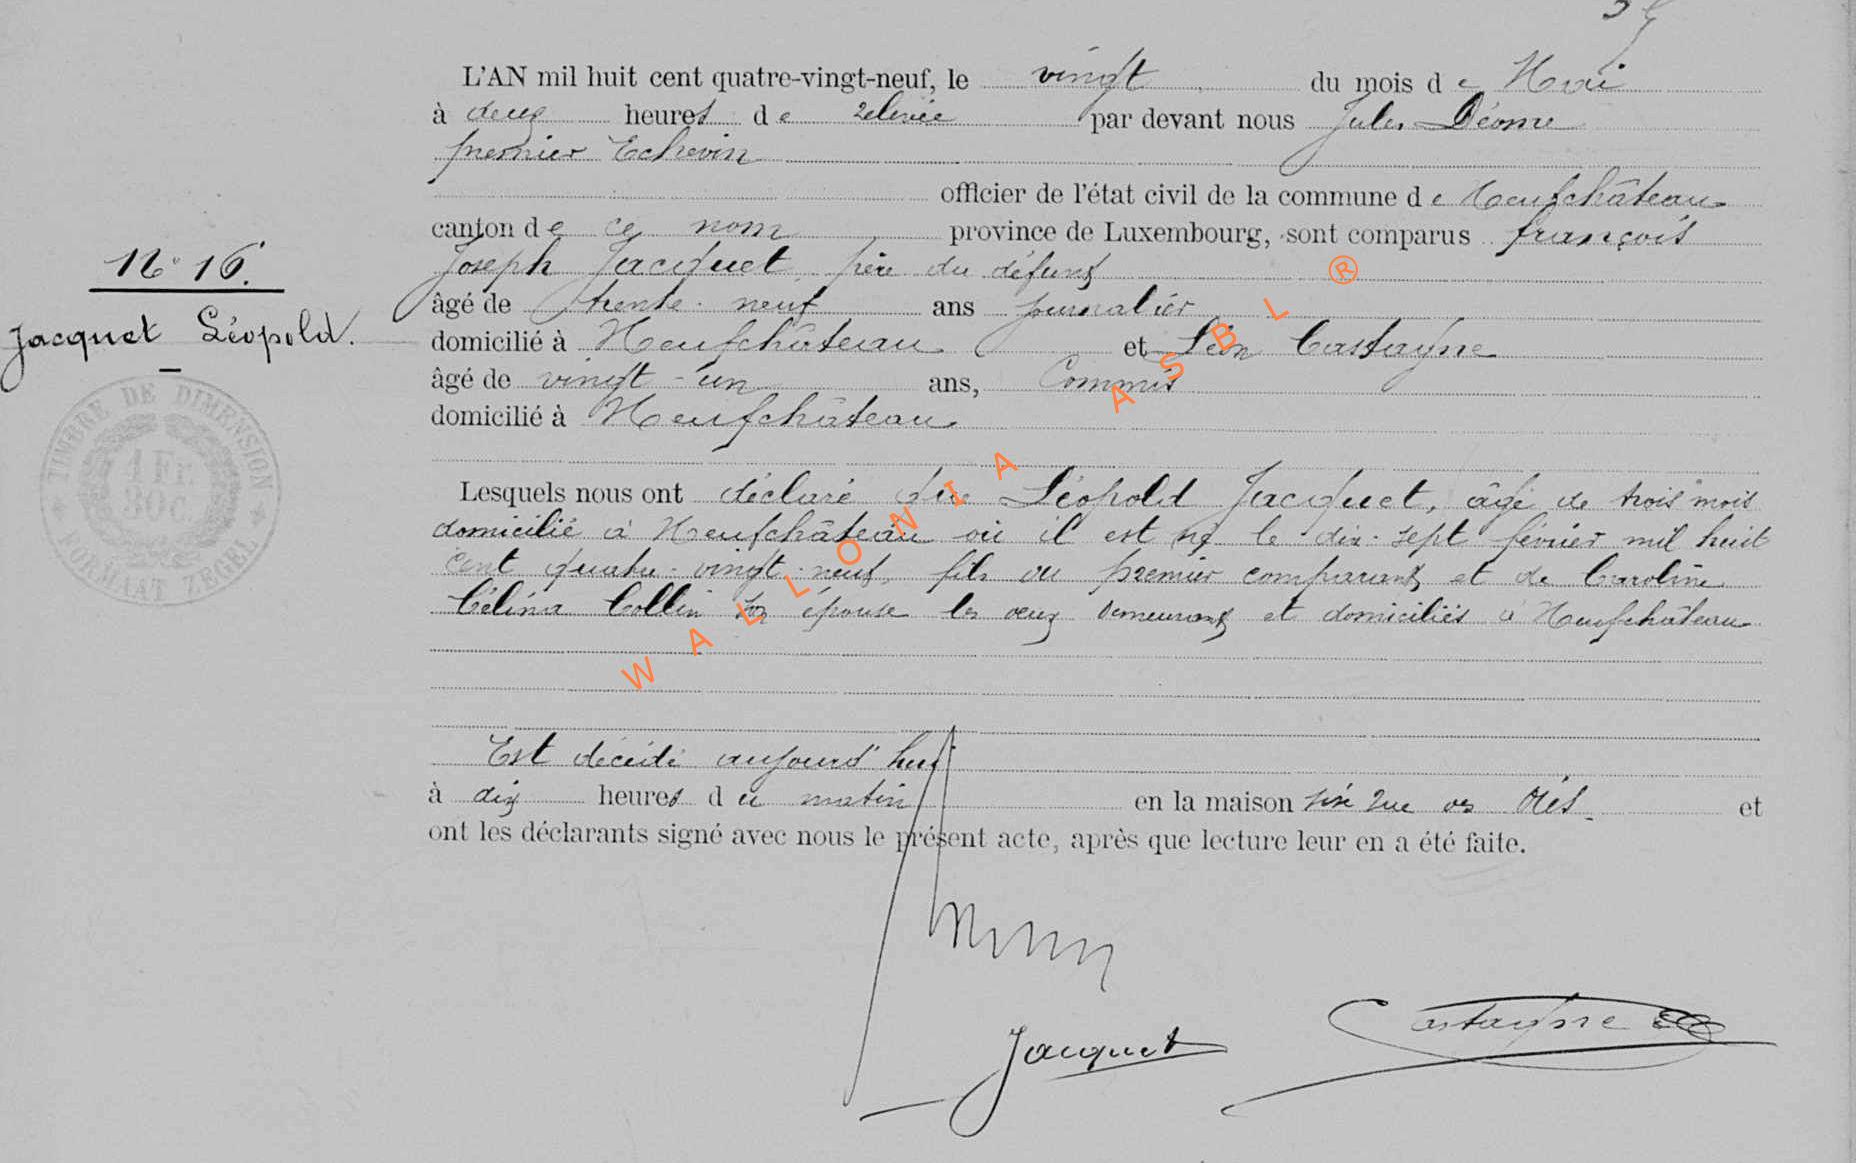 L'AN mil huit cent quatre-vingt-neuf, le vingt du mois de Mai
à deux heures de relevée par devant nous Jules Déome
premier Echevin
officier de l'état civil de la commune de Neufchâteau
canton de ce nom province de Luxembourg, sont comparus françois
Joseph Jacquet père du défunt
âgé de trente-neuf ans journalier
domicilié à Neufchâteau et Léon Castagne
âgé de vingt-un ans, Commis
domicilié à Neufchâteau
N° 16.
Jacquet Léopold.
TIMBRE DE DIMENSION
1 Fr.
30c
FORMAAT ZEGEL
Lesquels nous ont déclaré que Léopold Jacquet, âgé de trois mois
domicilié à Neufchâteau où il est né le dix-sept février mil huit
cent quatre-vingt-neuf, fils du premier comparant et de Caroline
Célina Collin son épouse les deux demeurant et domiciliés à Neufchâteau
Est décédé aujourd'hui
à dix heures du matin en la maison sise rue des et
ont les déclarants signé avec nous le présent acte, après que lecture leur en a été faite.
Jacquet
Castagne
WALLONIA ASBL ®